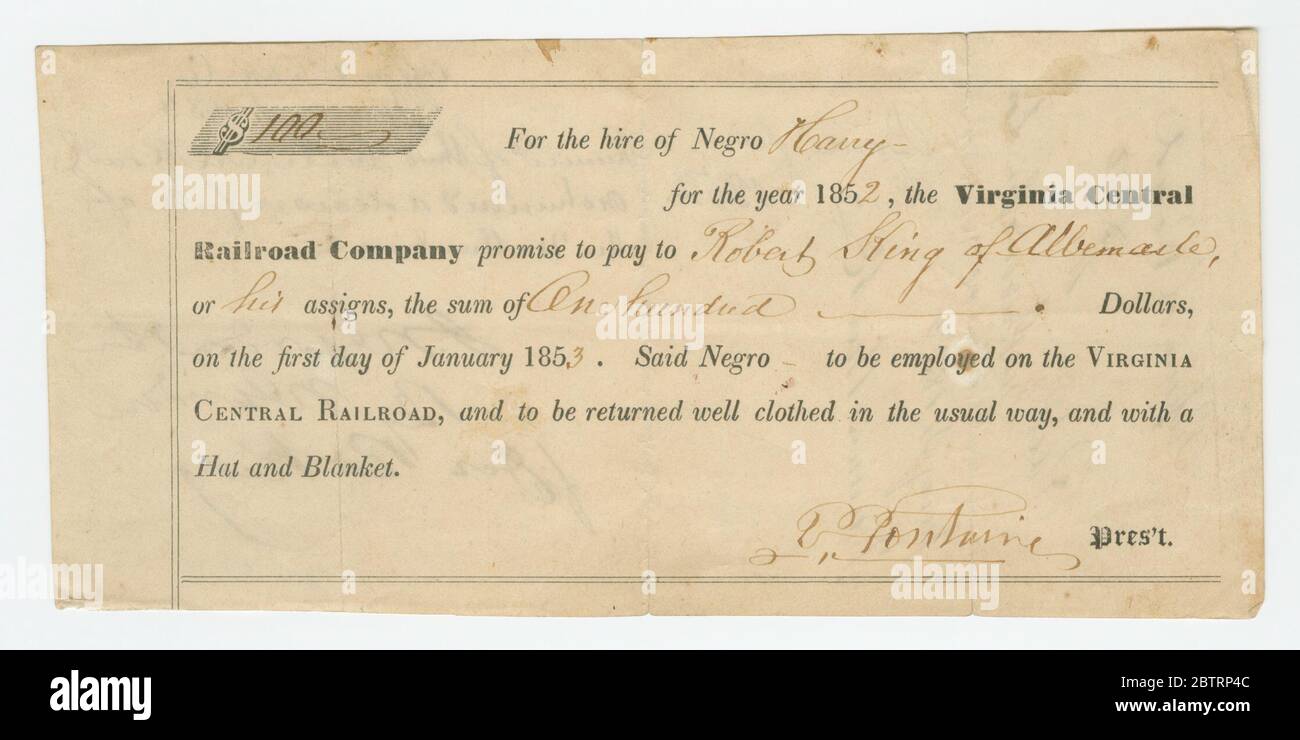 $ 100
For the hire of Negro Harry
for the year 1852, the Virginia Central
Railroad Company promise to pay to Robert King of Albemarle,
or his assigns, the sum of On hundred Dollars,
on the first day of January 1853. Said Negro - to be employed on the VIRGINIA
CENTRAL RAILROAD, and to be returned well clothed in the usual way, and with a
Hat and Blanket.
Fontaine Pres't.
alamy
Image ID: 2BTRP4C
www.alamy.com